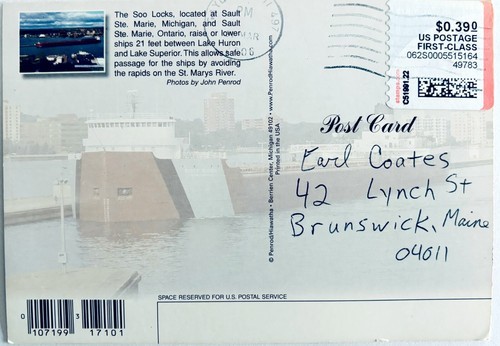 The Soo Locks, located at Sault
Ste. Marie, Michigan, and Sault
Ste. Marie, Ontario, raise or lower
ships 21 feet between Lake Huron
and Lake Superior. This allows safe
passage for the ships by avoiding
the rapids on the St. Marys River.
Photos by John Penrod
PM
MAR
497
$0.390
US POSTAGE
FIRST-CLASS
062S0005515164
49783
stamps.com
CS1991.22
© Penrod/Hiawatha • Berrien Center, Michigan 49102 • www.PenrodHiawatha.com
Printed in the USA
Post Card
Earl Coates
42 Lynch St
Brunswick, Maine
04011
SPACE RESERVED FOR U.S. POSTAL SERVICE
0 107199 3 17101